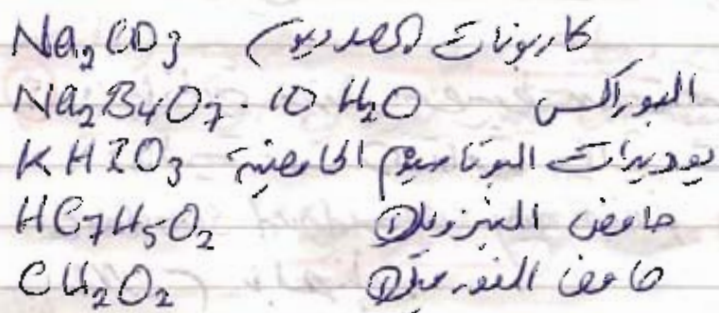 Na2CO3 كاربونات الصوديوم
Na2B4O7 . 10 H2O البوراكس
KHIO3 يوديدات البوتاسيوم الحامضية
HC7H5O2 حامض البنزويك
CH2O2 حامض الفورميك